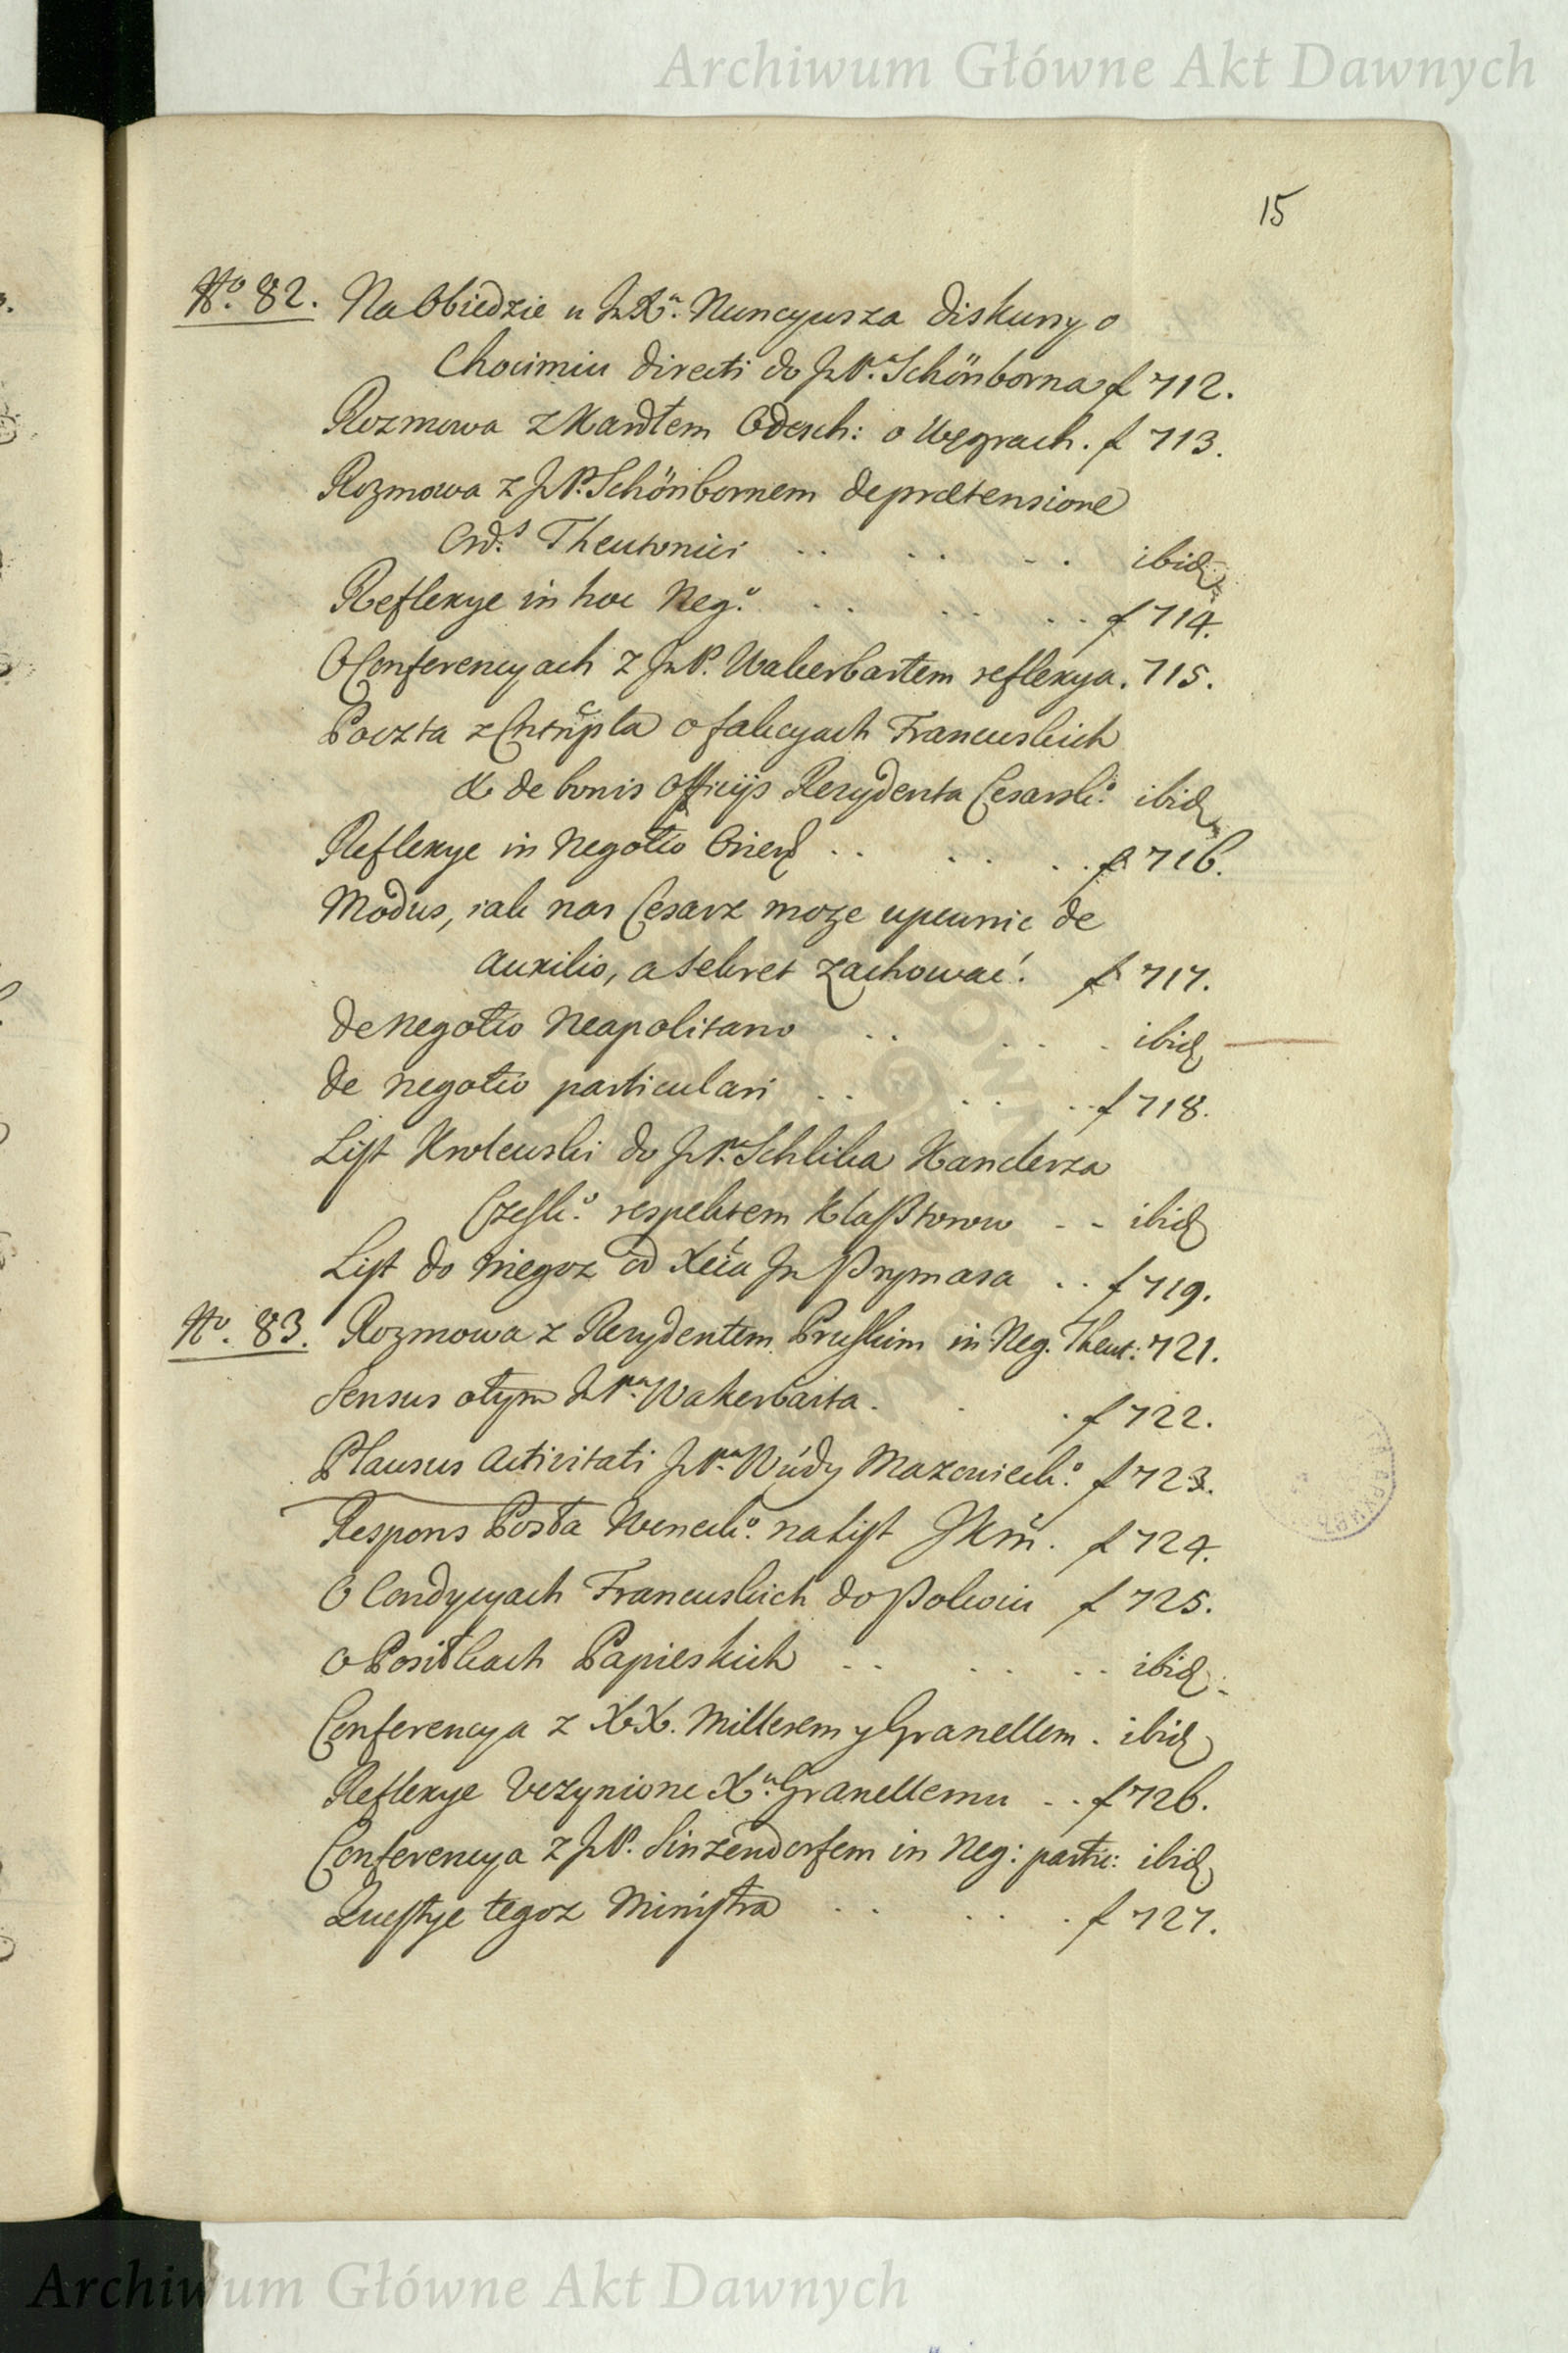 Archiwum Główne Akt Dawnych
15
No. 82. Na Obiedzie u JX.a Nuncyusza diskursy o
Chocimiu directi do JP.a Schönborna f 712.
Rozmowa z Kardłem Odesch: o Węgrach. f 713.
Rozmowa z JP. Schönbornem de prætensione
Ord.s Theutonici .. .. .. ibid
Reflexye in hoc Neg.o .. .. .. f 714.
O Conferencyach z JP. Wakerbartem reflexya. 715.
Poczta z Cnstnpla o fakcyach Francuskich
& de bonis officijs Rezydenta Cesarsk.o ibid
Reflexye in Negotio Orien .. .. .. f 716.
Modus, iak nas Cesarz moze upewnic de
auxilio, a sekret zachować. f 717.
de Negotio Neapolitano .. .. . ibid
de negotio particulari .. .. .. f 718.
List Krolewski do JP.a Schlika Kanclerza
Czesk.o respektem Klasztorow - - ibid
List do niegoz od Xcia Jn Prymasa .. f 719.
No. 83. Rozmowa z Rezydentem Pruskim in Neg. Theut: 721.
Sensus o tym JP.a Wakerbarta . . . f 722.
Plausus activitati JP.a Wdy Mazowieck.o f 723.
Respons Posła Weneck.o na List JKm. f 724.
O Condycyach Francuskich do Pokoiu f 725.
o Posiłkach Papieskich .. .. .. ibid.
Conferencya z XX. Millerem y Granellem . ibid
Reflexye Vczynione X.u Granellemu .. f 726.
Conferencya z JP. Sinzendorfem in Neg: partic: ibid
Quæstye tegoz Ministra .. .. . f 727.
Archiwum Główne Akt Dawnych